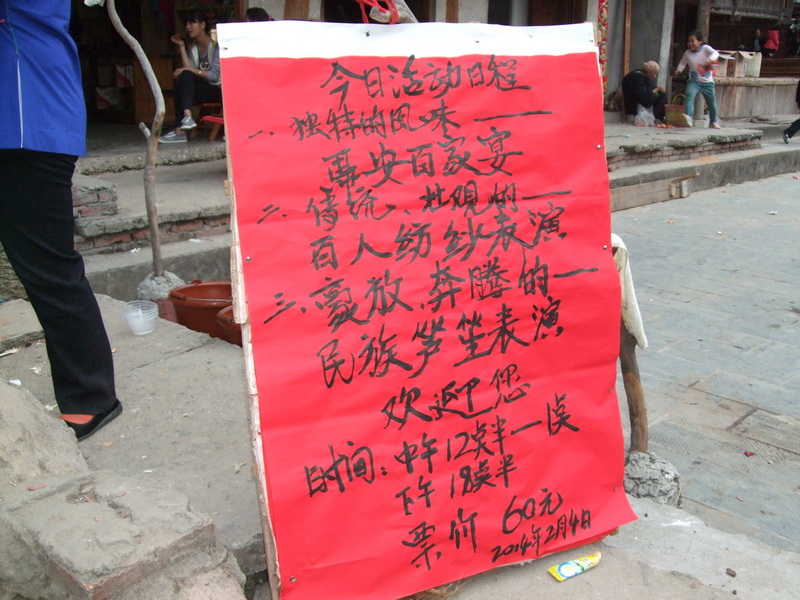 今日活动日程
一、独特的风味——
再安百家宴
二、传统、壮观的——
百人纺纱表演
三、豪放、奔腾的——
民族笋笙表演
欢迎您
时间:中午12点半—1点
下午18点半
票价 60元
2014年2月4日